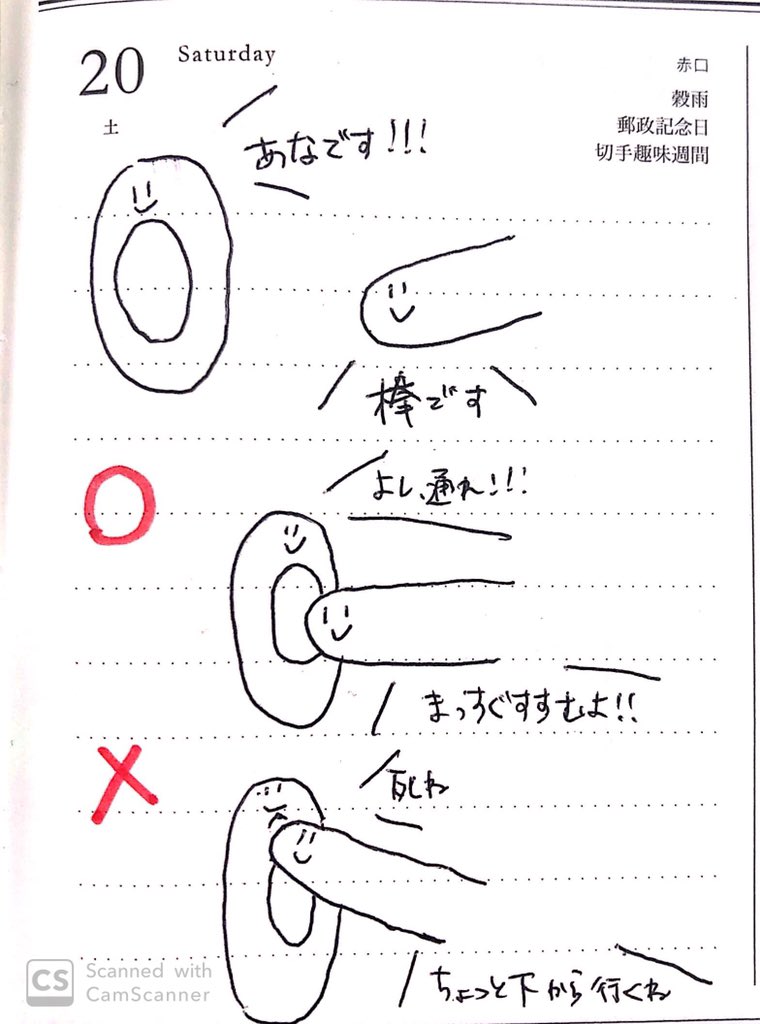 20 Saturday
土
赤口
穀雨
郵政記念日
切手趣味週間
あなです!!!
棒です
よし、通れ!!!
まっすぐすすむよ!!
死ね
ちょっと下から行くね
CS Scanned with
CamScanner